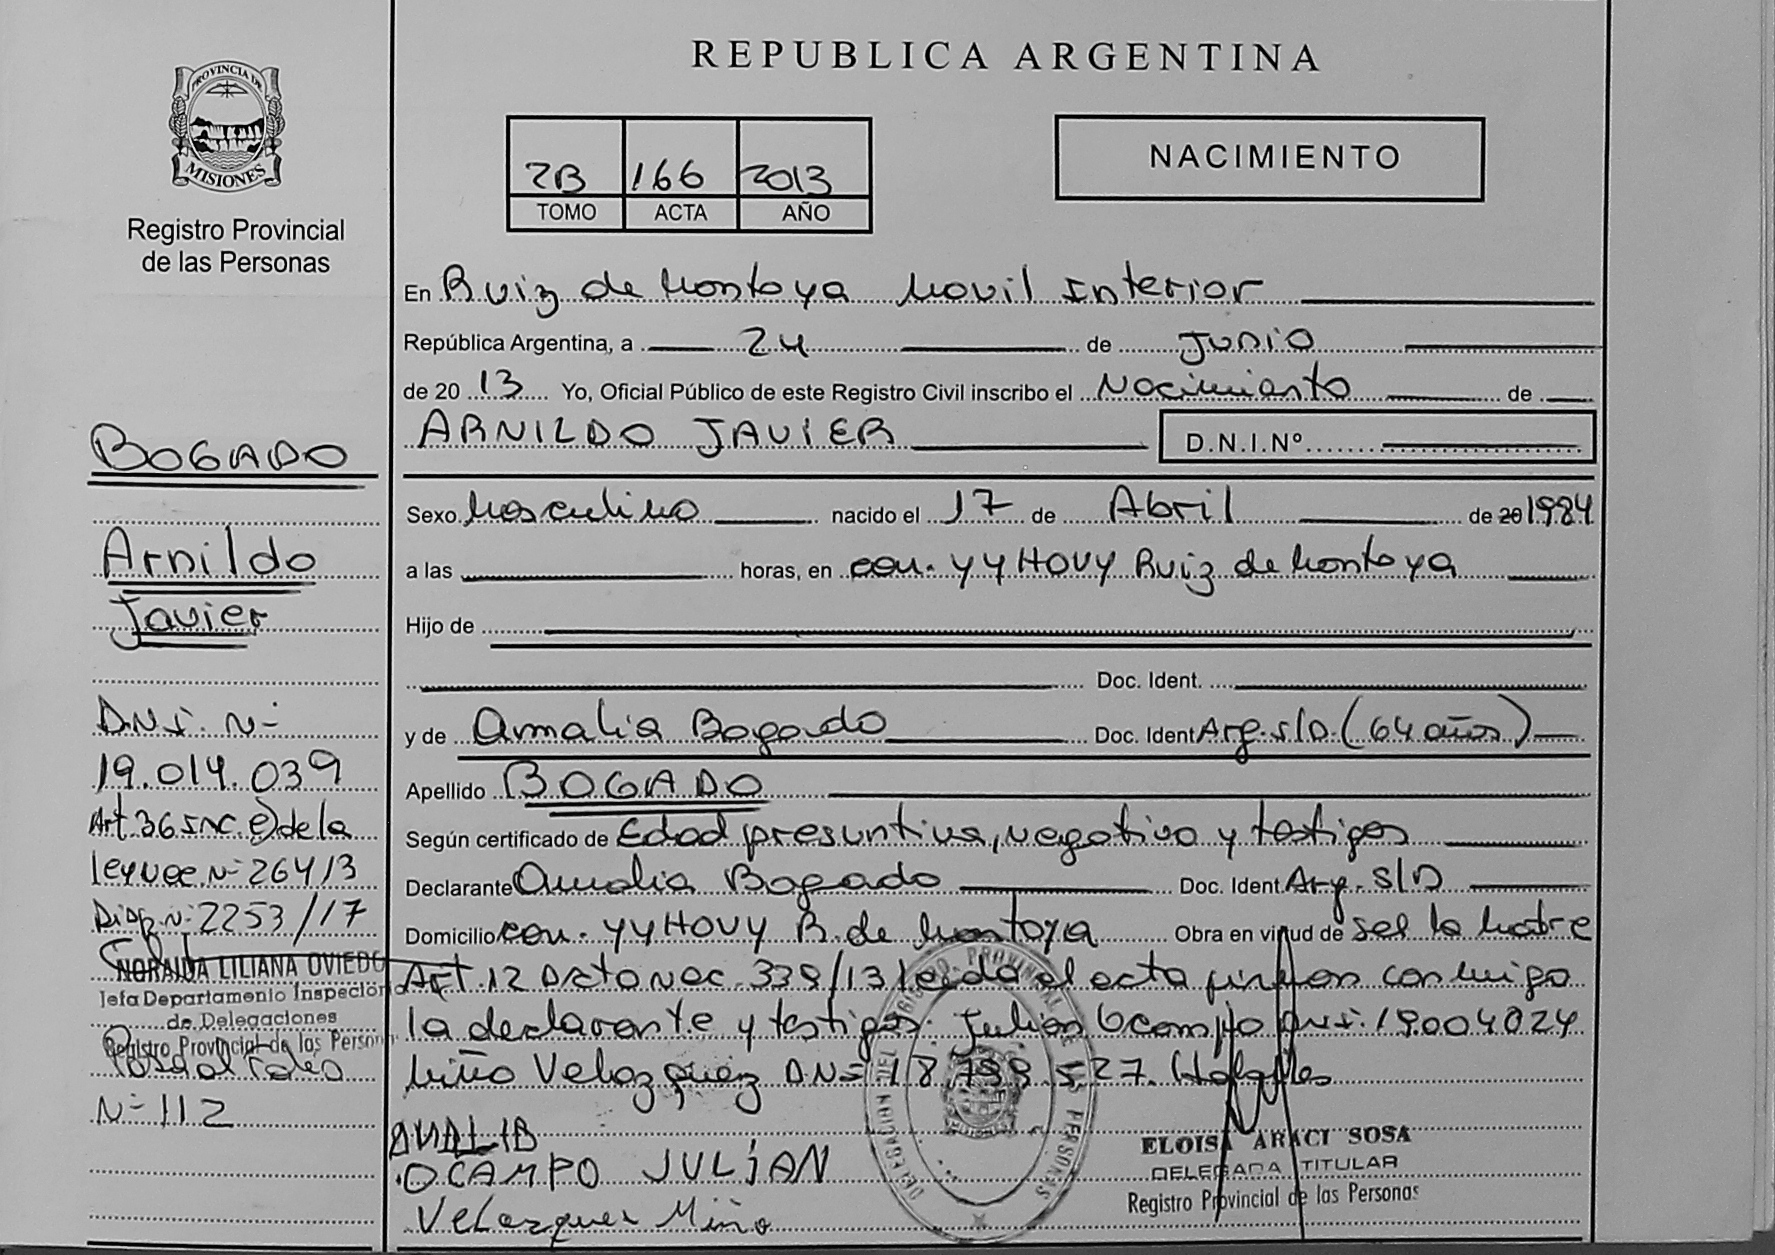 PROVINCIA DE
MISIONES
Registro Provincial
de las Personas
BOGADO
Arnildo
Javier
DNI. Nº
19.014.039
Art. 36 INC. e) de la
Ley Nec. Nº 264/13
Disp. Nº 2253/17
NORAIDA LILIANA OVIEDO
Jefa Departamento Inspección
de Delegaciones
Registro Provincial de las Person
Nº 112
REPUBLICA ARGENTINA
2B 166 2013
TOMO ACTA AÑO
NACIMIENTO
En Ruiz de Montoya Movil Interior
República Argentina, a 24 de Junio
de 2013 Yo, Oficial Público de este Registro Civil inscribo el Nacimiento de
ARNILDO JAVIER D.N.I.Nº
Sexo Masculino nacido el 17 de Abril de 20 1984
a las horas, en com. YYHOVY Ruiz de Montoya
Hijo de
Doc. Ident.
y de Amalia Bogado Doc. Ident Arg. S/D (64 años)
Apellido BOGADO
Según certificado de Edad presuntiva, negativo y testigos
Declarante Amalia Bogado Doc. Ident Arg. S/D
Domicilio com. YYHOVY R. de Montoya Obra en virtud de ser la Madre
Art. 12 Dcto Nec. 339/13 leida el acta firman conmigo
la declarante y testigos. Julian Ocampo DNI: 19004024
Miño Velazquez DNI 18.799.527.
AMALIA
OCAMPO JULIAN
Velazquez Miño
REGISTRO PROVINCIAL DE LAS PERSONAS
ELOISA ARACI SOSA
DELEGADA TITULAR
Registro Provincial de las Personas